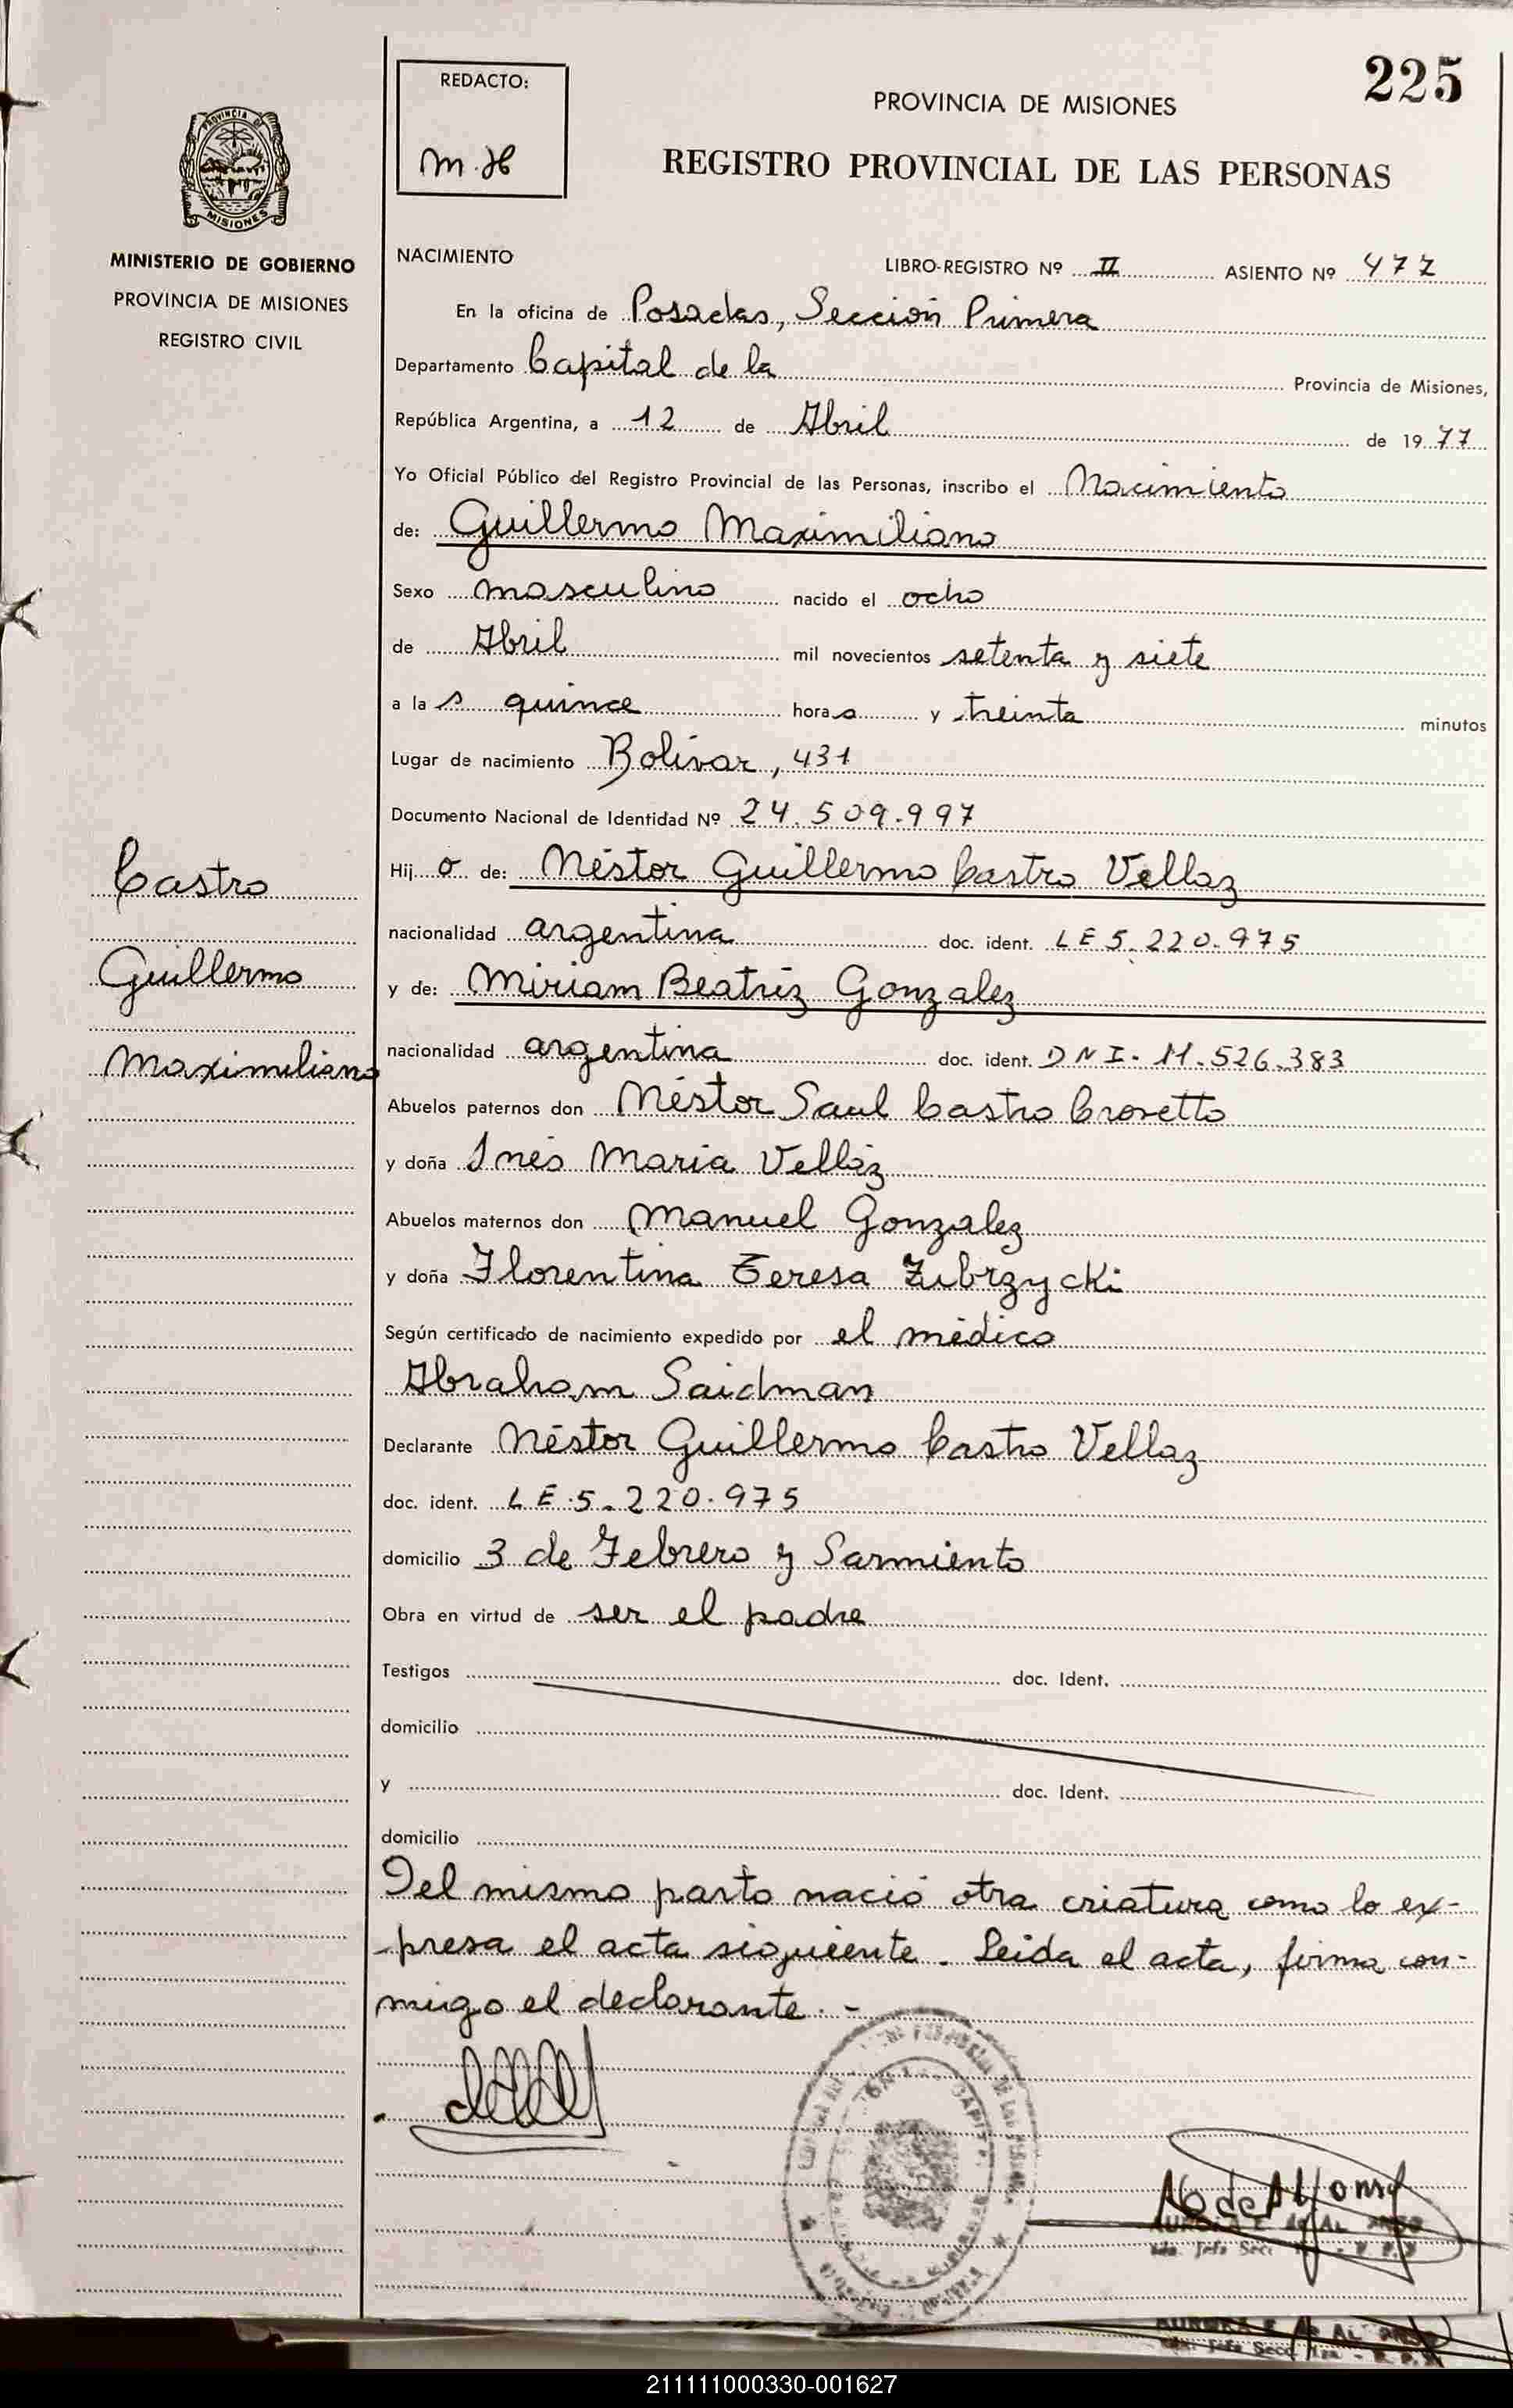 225
REDACTO:
M.H
PROVINCIA DE MISIONES
REGISTRO PROVINCIAL DE LAS PERSONAS
PROVINCIA DE
MISIONES
MINISTERIO DE GOBIERNO
PROVINCIA DE MISIONES
REGISTRO CIVIL
NACIMIENTO
LIBRO-REGISTRO Nº II ASIENTO Nº 477
En la oficina de Posadas, Sección Primera
Departamento Capital de la Provincia de Misiones,
República Argentina, a 12 de Abril de 1977
Yo Oficial Público del Registro Provincial de las Personas, inscribo el Nacimiento
de: Guillermo Maximiliano
Sexo masculino nacido el ocho
de Abril mil novecientos setenta y siete
a las quince horas y treinta minutos
Lugar de nacimiento Bolívar, 431
Documento Nacional de Identidad Nº 24.509.997
Castro
Guillermo
Maximiliano
Hijo de: Néstor Guillermo Castro Vellaz
nacionalidad argentina doc. ident. LE 5.220.975
y de: Miriam Beatriz Gonzalez
nacionalidad argentina doc. ident. DNI. 11.526.383
Abuelos paternos don Néstor Saul Castro Crosetto
y doña Inés Maria Velláz
Abuelos maternos don Manuel Gonzalez
y doña Florentina Teresa Zubrzycki
Según certificado de nacimiento expedido por el médico
Abraham Saidman
Declarante Néstor Guillermo Castro Vellaz
doc. ident. LE 5.220.975
domicilio 3 de Febrero y Sarmiento
Obra en virtud de ser el padre
Testigos doc. Ident.
domicilio
y doc. Ident.
domicilio
Del mismo parto nació otra criatura como lo ex-
presa el acta siguiente. Leida el acta, firma con-
migo el declarante. -
211111000330-001627